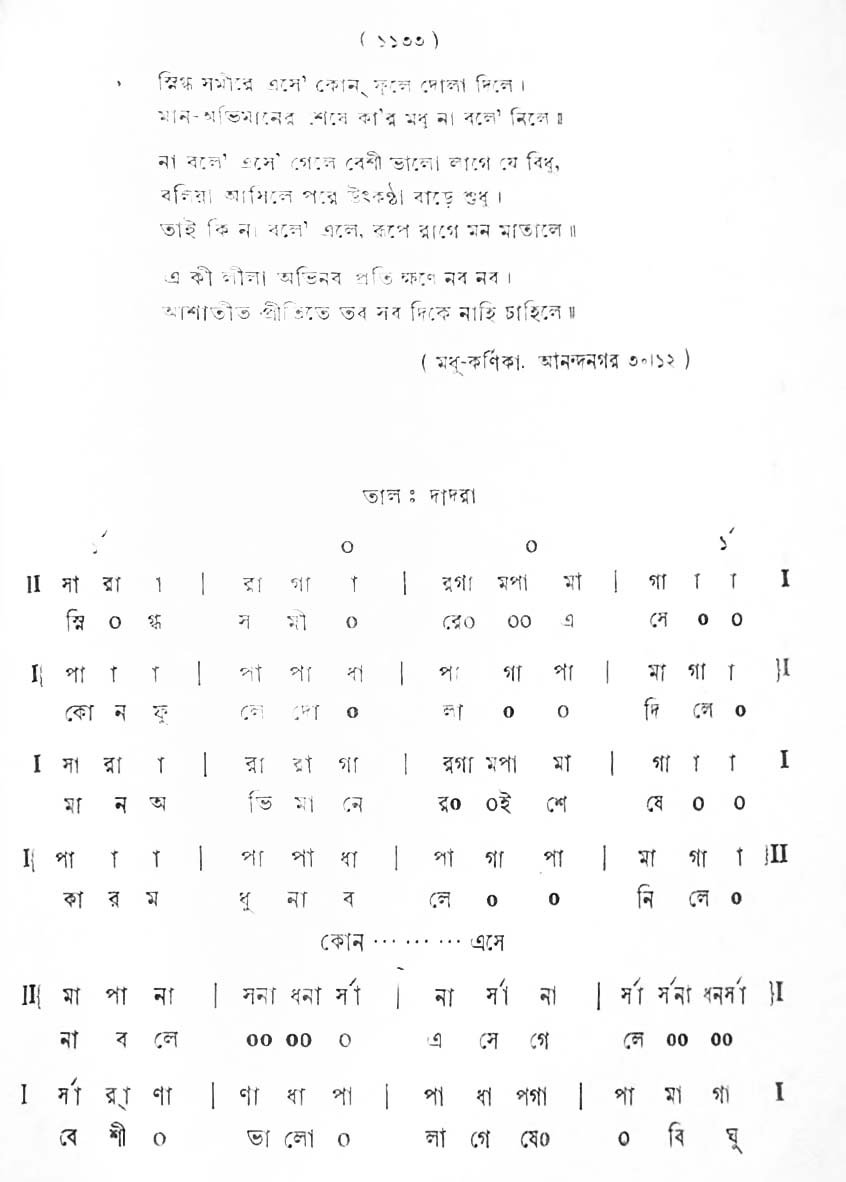 ( ১১৩৩ )
স্নিগ্ধ সমীরে এসে' কোন্ ফুলে দোলা দিলে।
মান-অভিমানের শেষে কা'র মধু না বলে' নিলে॥
না বলে' এসে' গেলে বেশী ভালো লাগে যে বিধু,
বলিয়া আসিলে পরে উৎকণ্ঠা বাড়ে শুধু।
তাই কি না বলে' এলে, রূপে রাগে মন মাতালে॥
এ কী লীলা অভিনব প্রতি ক্ষণে নব নব।
আশাতীত প্রীতিতে তব সব দিকে নাহি চাহিলে॥
( মধু-কর্ণিকা. আনন্দনগর ৩০।১২ )
তাল ঃ দাদরা
১´ ০ ০ ১´
II সা রা া | রা গা া | রগা মপা মা | গা া া I
স্নি ০ গ্ধ স মী ০ রে০ ০০ এ সে ০ ০
I{ পা া া | পা পা ধা | পা গা পা | মা গা া }I
কো ন ফু লে দো ০ লা ০ ০ দি লে ০
I সা রা া | রা রা গা | রগা মপা মা | গা া া I
মা ন অ ভি মা নে র০ ০ই শে ষে ০ ০
I{ পা া া | পা পা ধা | পা গা পা | মা গা া }II
কা র ম ধু না ব লে ০ ০ নি লে ০
কোন ··· ··· ··· এসে
II{ মা পা না | সনা ধনা র্সা | না র্সা না | র্সা র্সনা ধনর্সা }I
না ব লে ০০ ০০ ০ এ সে গে লে ০০ ০০
I র্সা র্রা ণা | ণা ধা পা | পা ধা পগা | পা মা গা I
বে শী ০ ভা লো ০ লা গে ষে০ ০ বি ঘু